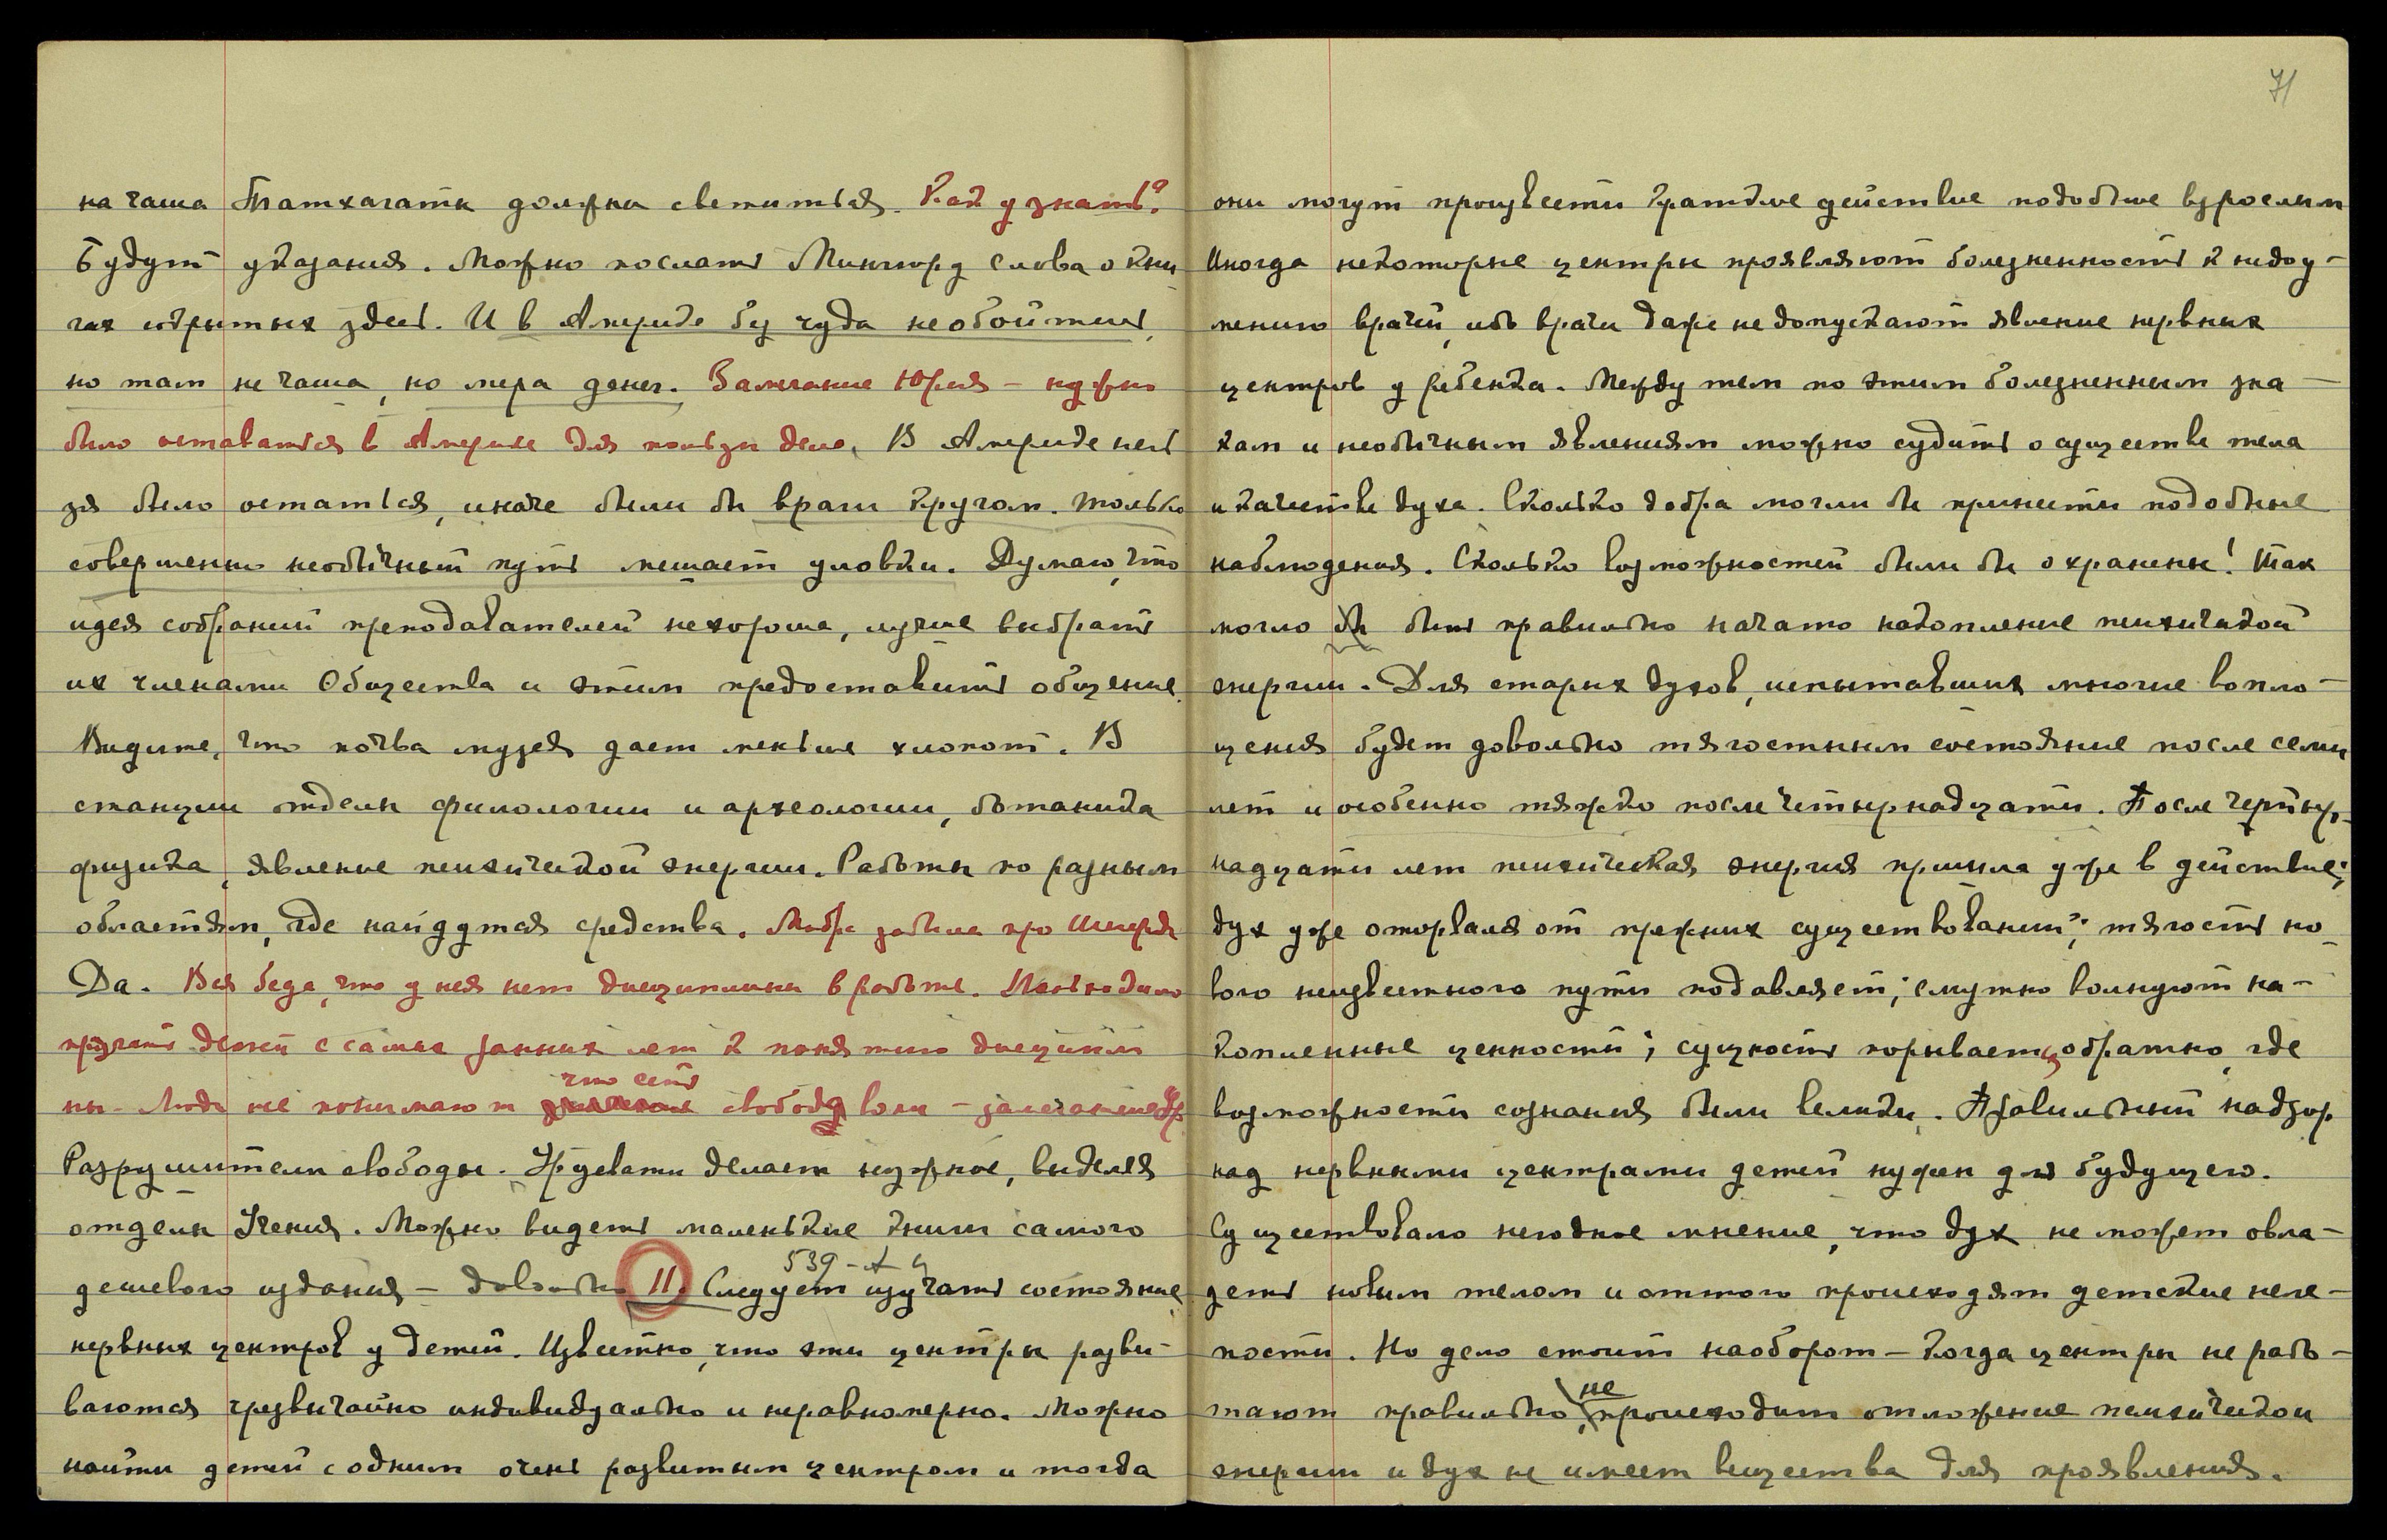 на чаша Татхагаты должна светиться. Как узнать?
Будут указания. Можно послать Мингиюрд слова о кни
гах сокрытых здесь. И в Америке без чуда не обойтись,
но там не чаша, но мера денег. Замечание Юрия – нужно
было оставаться в Америке для пользы дела. В Америке нель
зя было остаться, иначе были бы враги кругом. Только
совершенно необычный путь мешает уловки. Думаю, что
идея собраний преподавателей нехороша, лучше выбрать
их членами Общества и этим предоставить общение.
Видите, что почва музея дает меньше хлопот. В
станции отделы филологии и археологии, ботаника
физика, явление психической энергии. Работы по разным
областям, где найдутся средства.
Да. Вся беда, что у нея нет дисциплины в работе. Необходимо
приучать детей с самых ранних лет к понятию дисципли
ны. Люди не понимают что есть свобода воли –
Разрушители свободы. Уруевати делает нужное, выделяя
отделы Учения. Можно видеть маленькие книги самого
дешевого издания – довольно 11. Следует изучать состояние
539 –
нервных центров у детей. Известно, что эти центры разви-
ваются чрезвычайно индивидуально и неравномерно. Можно
найти детей с одним очень развитым центром и тогда
71
они могут произвести краткие действие подобные взрослым
Иногда некоторые центры проявляют болезненность к недоу-
мению врачей, ибо врачи даже не допускают явление нервных
центров у ребенка. Между тем по этим болезненным зна-
кам и необычным явлениям можно судить о существе тела
и качестве духа. Сколько добра могли бы принести подобные
наблюдения. Сколько возможностей были бы охранены! Так
могло бы быть правильно начато накопление психической
энергии. Для старых духов, испытавших многие вопло-
щения будет довольно тягостным состояние после семи
лет и особенно тяжко после четырнадцати. После четыр-
надцати лет психическая энергия пришла уже в действие;
дух уже оторвался от прежних существований; тягость но-
вого неизвестного пути подавляет; смутно волнуют на-
копленные ценности; сущность порывается обратно, где
возможности сознания были велики. Правильный надзор
над нервными центрами детей нужен для будущего.
Существовало негодное мнение, что дух не может овла-
деть новым телом и оттого происходят детские неле-
пости. Но дело стоит наоборот – когда центры не рабо-
тают правильно, не происходит отложение психической
энергии и дух не имеет вещества для проявления.